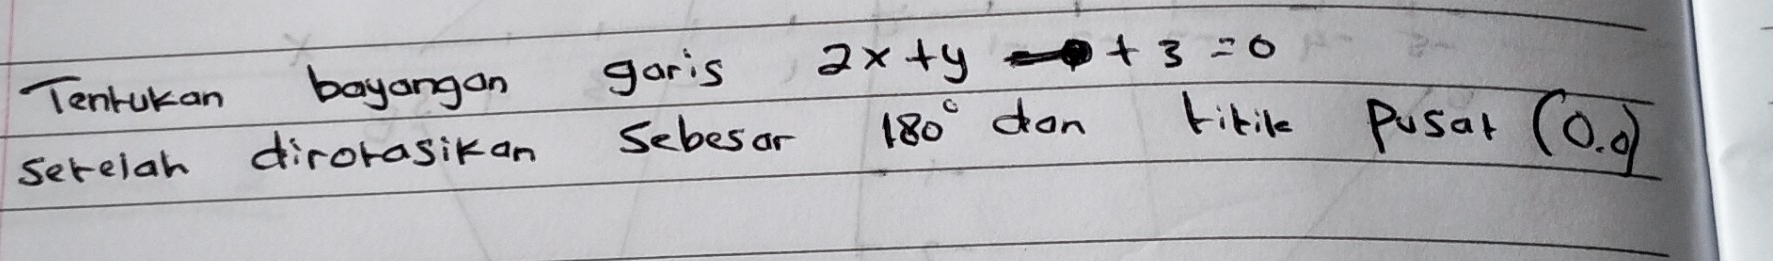 Tentukan bayangan garis 2x+y +3=0
setelah dirotasikan sebesar 180° dan titik pusat (0.0)